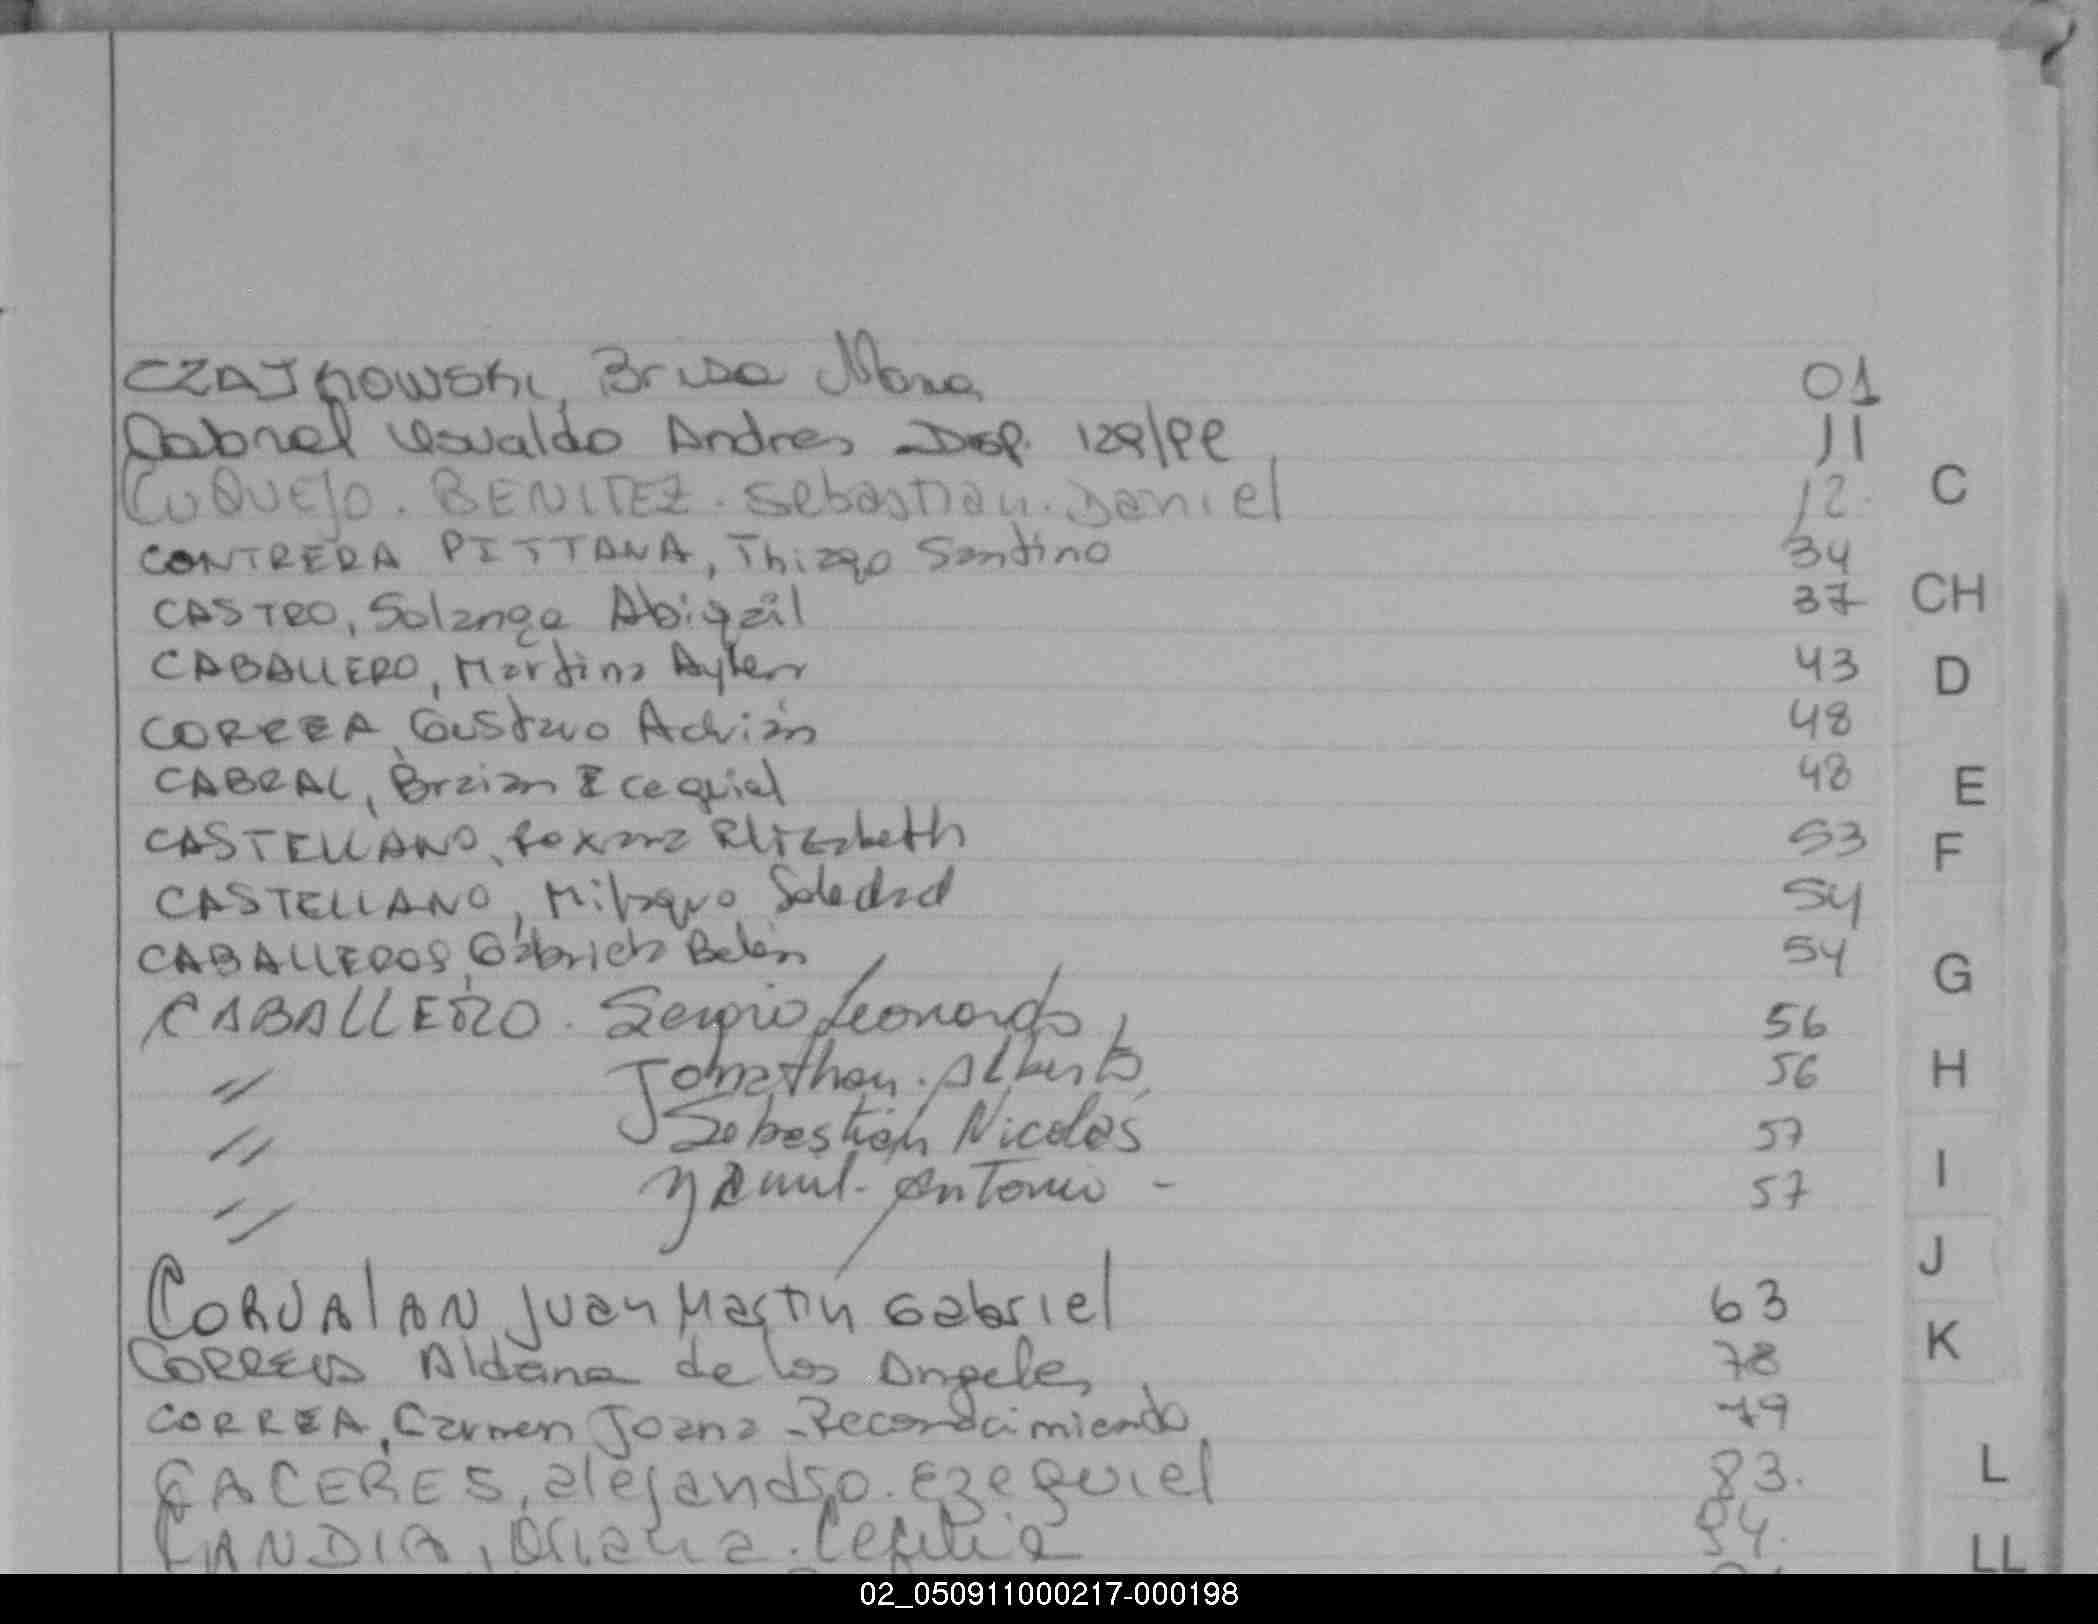 CZAJKOWSKI, Brisa Mara 01
Cabral Osvaldo Andres Disp. 129/PP 11
CUQUEJO. BENITEZ. Sebastian. Daniel 12. C
CONTRERA PITTANA, Thiago Santino 34
CASTRO, Solange Abigail 37 CH
CABALLERO, Martina Aylen 43 D
CORREA, Gustavo Adrián 48
CABRAL, Braian Ecequiel 48 E
CASTELLANO, Roxana Elizabeth 53 F
CASTELLANO, Milagro Soledad 54
CABALLEROS, Gabriela Belén 54 G
CABALLERO. Sergio Leonardo, 56
" Jonathan. Alberto 56 H
" Sebastián Nicolás 57
" Yamil. Antonio - 57 I
J
CORVALAN Juan Martin Gabriel 63
Aldana de los Angeles 78 K
CORREA, Carmen Joana - Reconocimiento 79
CACERES, alejandro. Ezequiel 83. L
CANDIA, Oriana. Cecilia 94. LL
02_050911000217-000198